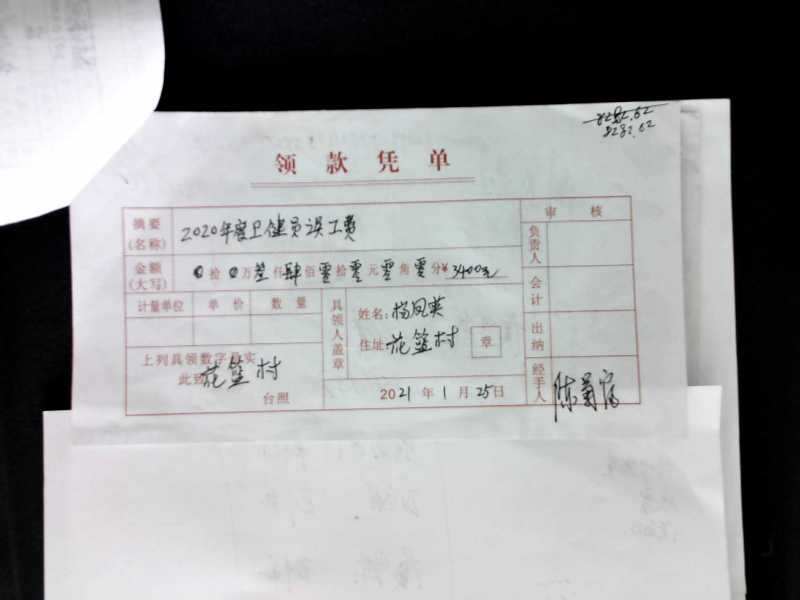 8282.62
8282.62
领款凭单
摘要(名称) 2020年度卫健员误工费
审核
负责人
金额(大写) 0拾0万叁仟肆佰零拾零元零角零分¥3400元
会计
计量单位 单价 数量
具领人盖章
姓名:杨凤英
住址 花篮村 章
出纳
上列具领数字 实
此致 花篮村
台照
2021年1月25日
经手人 陈